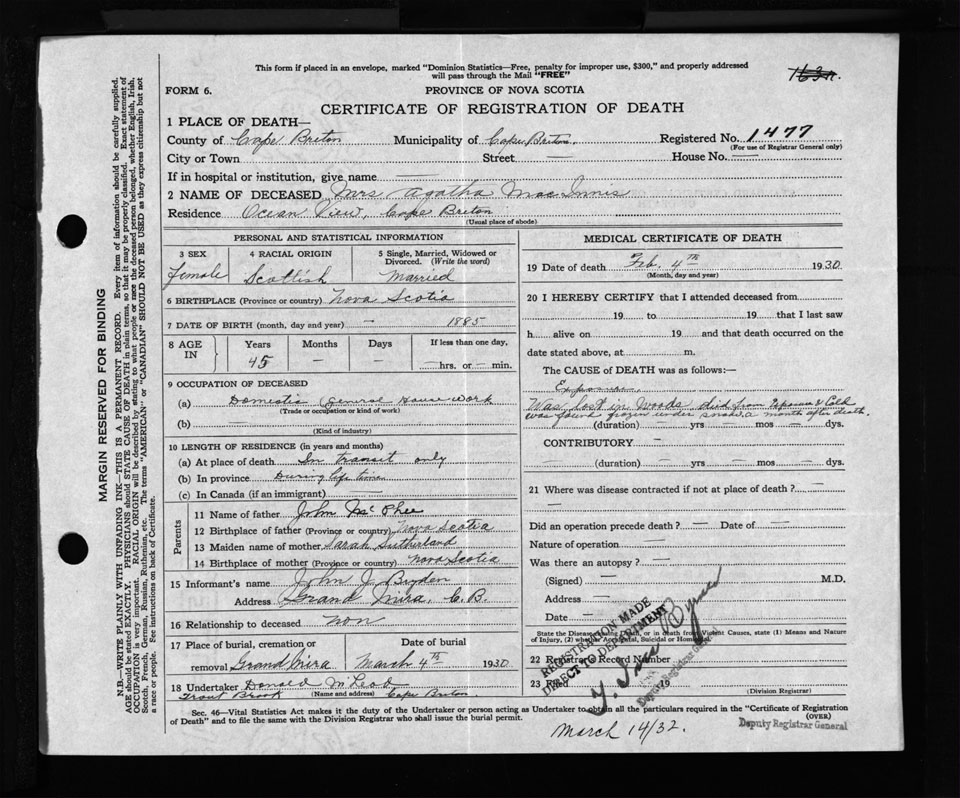 This form if placed in an envelope, marked "Dominion Statistics—Free, penalty for improper use, $300," and properly addressed
will pass through the Mail "FREE"
163a.
FORM 6.
PROVINCE OF NOVA SCOTIA
CERTIFICATE OF REGISTRATION OF DEATH
1 PLACE OF DEATH—
County of Cape Breton Municipality of Cape Breton. Registered No. 1477
(For use of Registrar General only)
City or Town Street — House No. —
If in hospital or institution, give name —
2 NAME OF DECEASED Mrs Agatha MacInnis
Residence Ocean View, Cape Breton
(Usual place of abode)
PERSONAL AND STATISTICAL INFORMATION
3 SEX 4 RACIAL ORIGIN 5 Single, Married, Widowed or
Divorced. (Write the word)
Female Scottish Married
6 BIRTHPLACE (Province or country) Nova Scotia
7 DATE OF BIRTH (month, day and year) — 1885
8 AGE IN Years Months Days If less than one day,
45 — — hrs. or — min.
9 OCCUPATION OF DECEASED
(a) Domestic General House Work
(Trade or occupation or kind of work)
(b) —
(Kind of industry)
10 LENGTH OF RESIDENCE (in years and months)
(a) At place of death In transit only
(b) In province During life time
(c) In Canada (if an immigrant) —
Parents
11 Name of father John McPhee
12 Birthplace of father (Province or country) Nova Scotia
13 Maiden name of mother Sarah Sutherland
14 Birthplace of mother (Province or country) Nova Scotia
15 Informant's name John J Bryden
Address Grand Mira, C.B.
16 Relationship to deceased Non
17 Place of burial, cremation or Date of burial
removal Grand Mira March 4th 1930
18 Undertaker Donald McLeod
Trout Brook (Name and address) Cape Breton.
MEDICAL CERTIFICATE OF DEATH
19 Date of death Feb. 4th 1930
(Month, day and year)
20 I HEREBY CERTIFY that I attended deceased from
19 to 19 that I last saw
h alive on 19 and that death occurred on the
date stated above, at m.
The CAUSE of DEATH was as follows:—
Exposure.
Was lost in woods died from Exposure & Cold
was found frozen under snow a month after death.
(duration) — yrs — mos — dys.
CONTRIBUTORY —
(duration) — yrs — mos — dys.
21 Where was disease contracted if not at place of death? —
Did an operation precede death? — Date of —
Nature of operation —
Was there an autopsy? —
(Signed) — M.D.
Address —
Date —
State the Disease causing Death, or in death from Violent Causes, state (1) Means and Nature
of Injury, (2) whether Accidental, Suicidal or Homicidal
22 Registrar's Record Number
23 Filed
(Division Registrar)
REGISTRATION MADE
DIRECT TO DEPARTMENT
Deputy Registrar General
Sec. 46—Vital Statistics Act makes it the duty of the Undertaker or person acting as Undertaker to obtain all the particulars required in the "Certificate of Registration
of Death" and to file the same with the Division Registrar who shall issue the burial permit. (OVER)
March 14/32.
Deputy Registrar General
MARGIN RESERVED FOR BINDING
N.B.—WRITE PLAINLY WITH UNFADING INK—THIS IS A PERMANENT RECORD. Every item of information should be carefully supplied.
AGE should be stated EXACTLY. PHYSICIANS should STATE CAUSE OF DEATH in plain terms, so that it may be properly classified. Exact statement of
OCCUPATION is very important. RACIAL ORIGIN will be described by stating to what people or race the deceased person belonged, whether English, Irish,
Scotch, French, German, Russian, Ruthenian, etc. The terms "AMERICAN" or "CANADIAN" SHOULD NOT BE USED as they express citizenship but not
a race or people. See instructions on back of Certificate.